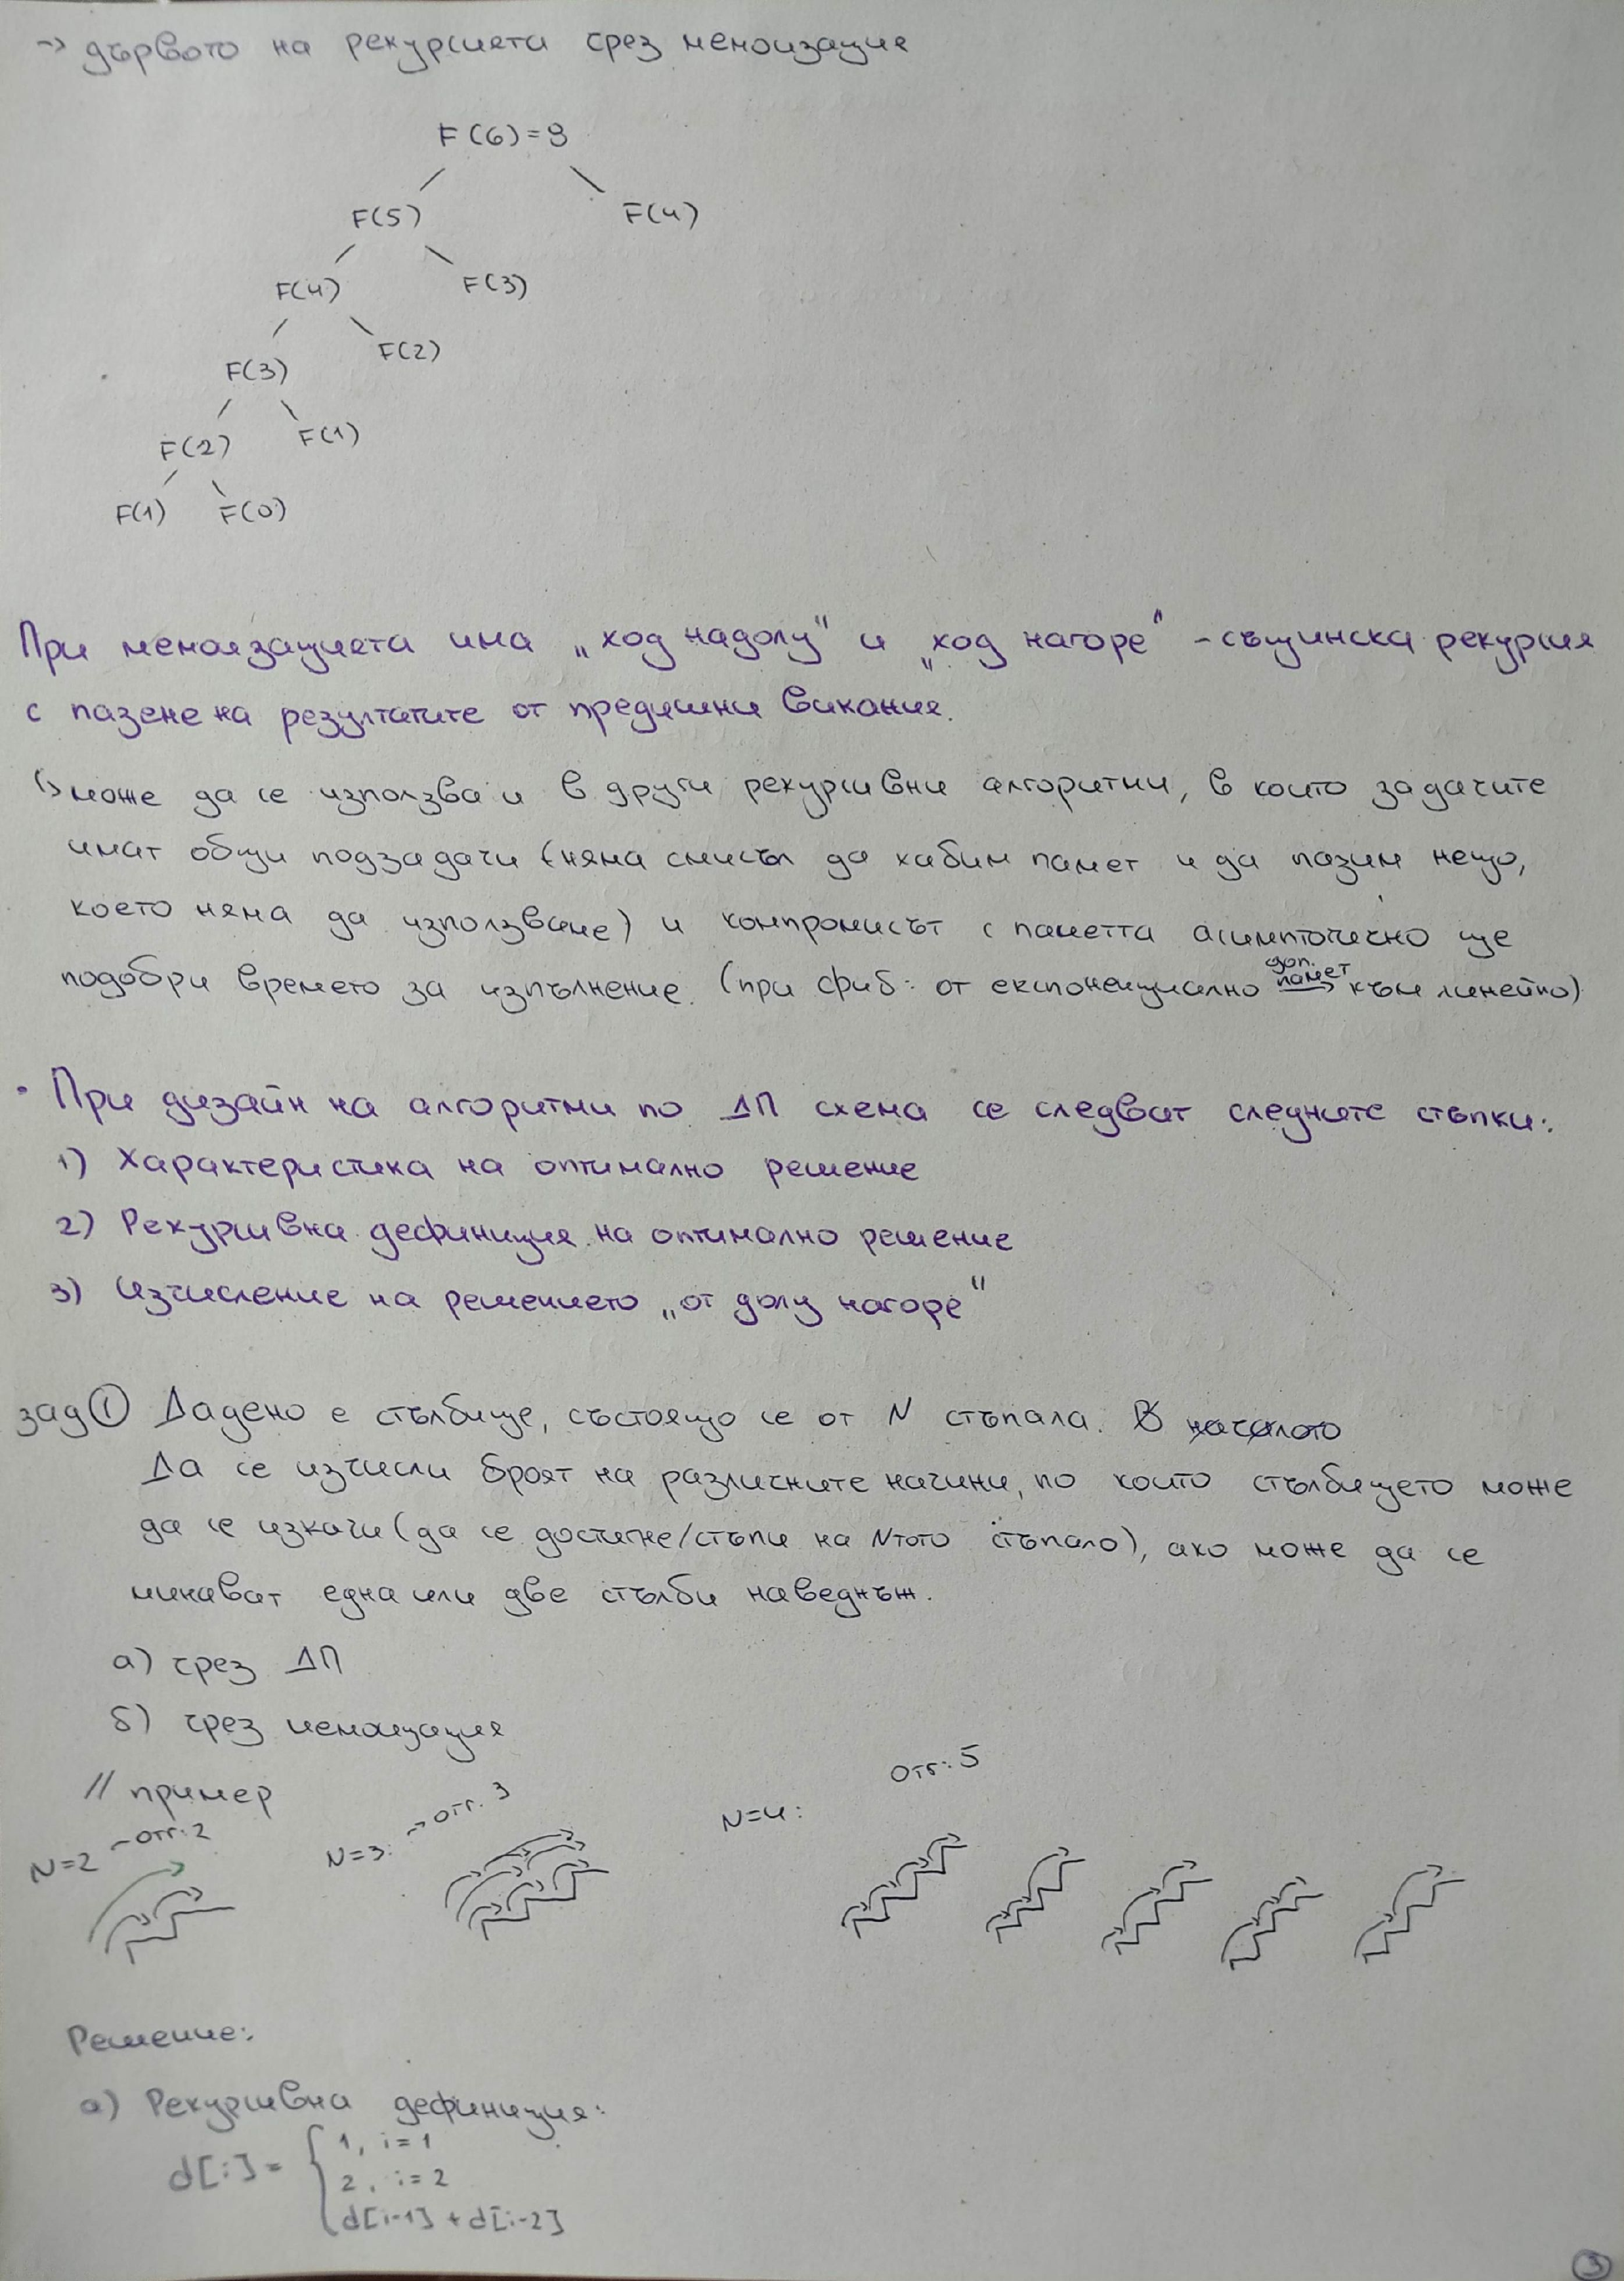 → дървото на рекурсията чрез мемоизация
F(6)=8
F(5) F(4)
F(4) F(3)
F(3) F(2)
F(2) F(1)
F(1) F(0)
При мемоизацията има „ход надолу" и „ход нагоре" - същинска рекурсия
с пазене на резултатите от предишни викания.
↳ може да се използва и в други рекурсивни алгоритми, в които задачите
имат общи подзадачи (няма смисъл да хабим памет и да пазим нещо,
което няма да използваме) и компромисът с паметта асимптотично ще
подобри времето за изпълнение. (при фиб: от експоненциално доп. памет → към линейно)
• При дизайн на алгоритми по ДП схема се следват следните стъпки:
1) Характеристика на оптимално решение
2) Рекурсивна дефиниция на оптимално решение
3) Изчисление на решението „от долу нагоре"
зад ① Дадено е стълбище, състоящо се от N стъпала. В началото
Да се изчисли броят на различните начини, по които стълбището може
да се изкачи (да се достигне/стъпи на Nтото стъпало), ако може да се
минават една или две стълби наведнъж.
а) чрез ДП
б) чрез мемоизация
// пример
N=2 → отг: 2 N=3: → отг. 3 N=4: Отг: 5
Решение:
а) Рекурсивна дефиниция:
d[i] = { 1, i=1
2, i=2
d[i-1] + d[i-2]
3